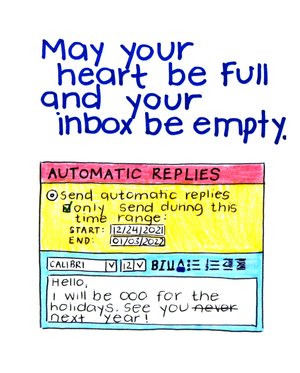 May your
heart be full
and your
inbox be empty.
AUTOMATIC REPLIES
Send automatic replies
only send during this
time range:
START: 12/24/2021
END: 01/03/2022
CALIBRI 12 B I U A
Hello,
I will be OOO for the
holidays. See you never
next year!